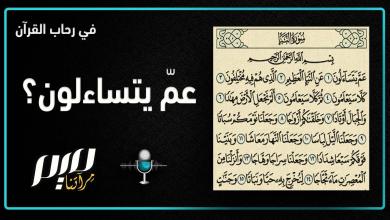 في رحاب القرآن
عمّ يتساءلون؟
سُورَةُ النَّبَإِ
بِسْمِ اللَّهِ الرَّحْمَٰنِ الرَّحِيمِ
عَمَّ يَتَسَاءَلُونَ ١ عَنِ النَّبَإِ الْعَظِيمِ ٢ الَّذِي هُمْ فِيهِ مُخْتَلِفُونَ ٣
كَلَّا سَيَعْلَمُونَ ٤ ثُمَّ كَلَّا سَيَعْلَمُونَ ٥ أَلَمْ نَجْعَلِ الْأَرْضَ مِهَادًا ٦
وَالْجِبَالَ أَوْتَادًا ٧ وَخَلَقْنَاكُمْ أَزْوَاجًا ٨ وَجَعَلْنَا نَوْمَكُمْ سُبَاتًا
٩ وَجَعَلْنَا اللَّيْلَ لِبَاسًا ١٠ وَجَعَلْنَا النَّهَارَ مَعَاشًا ١١ وَبَنَيْنَا
فَوْقَكُمْ سَبْعًا شِدَادًا ١٢ وَجَعَلْنَا سِرَاجًا وَهَّاجًا ١٣ وَأَنزَلْنَا مِنَ
الْمُعْصِرَاتِ مَاءً ثَجَّاجًا ١٤ لِّنُخْرِجَ بِهِ حَبًّا وَنَبَاتًا ١٥ وَجَنَّاتٍ